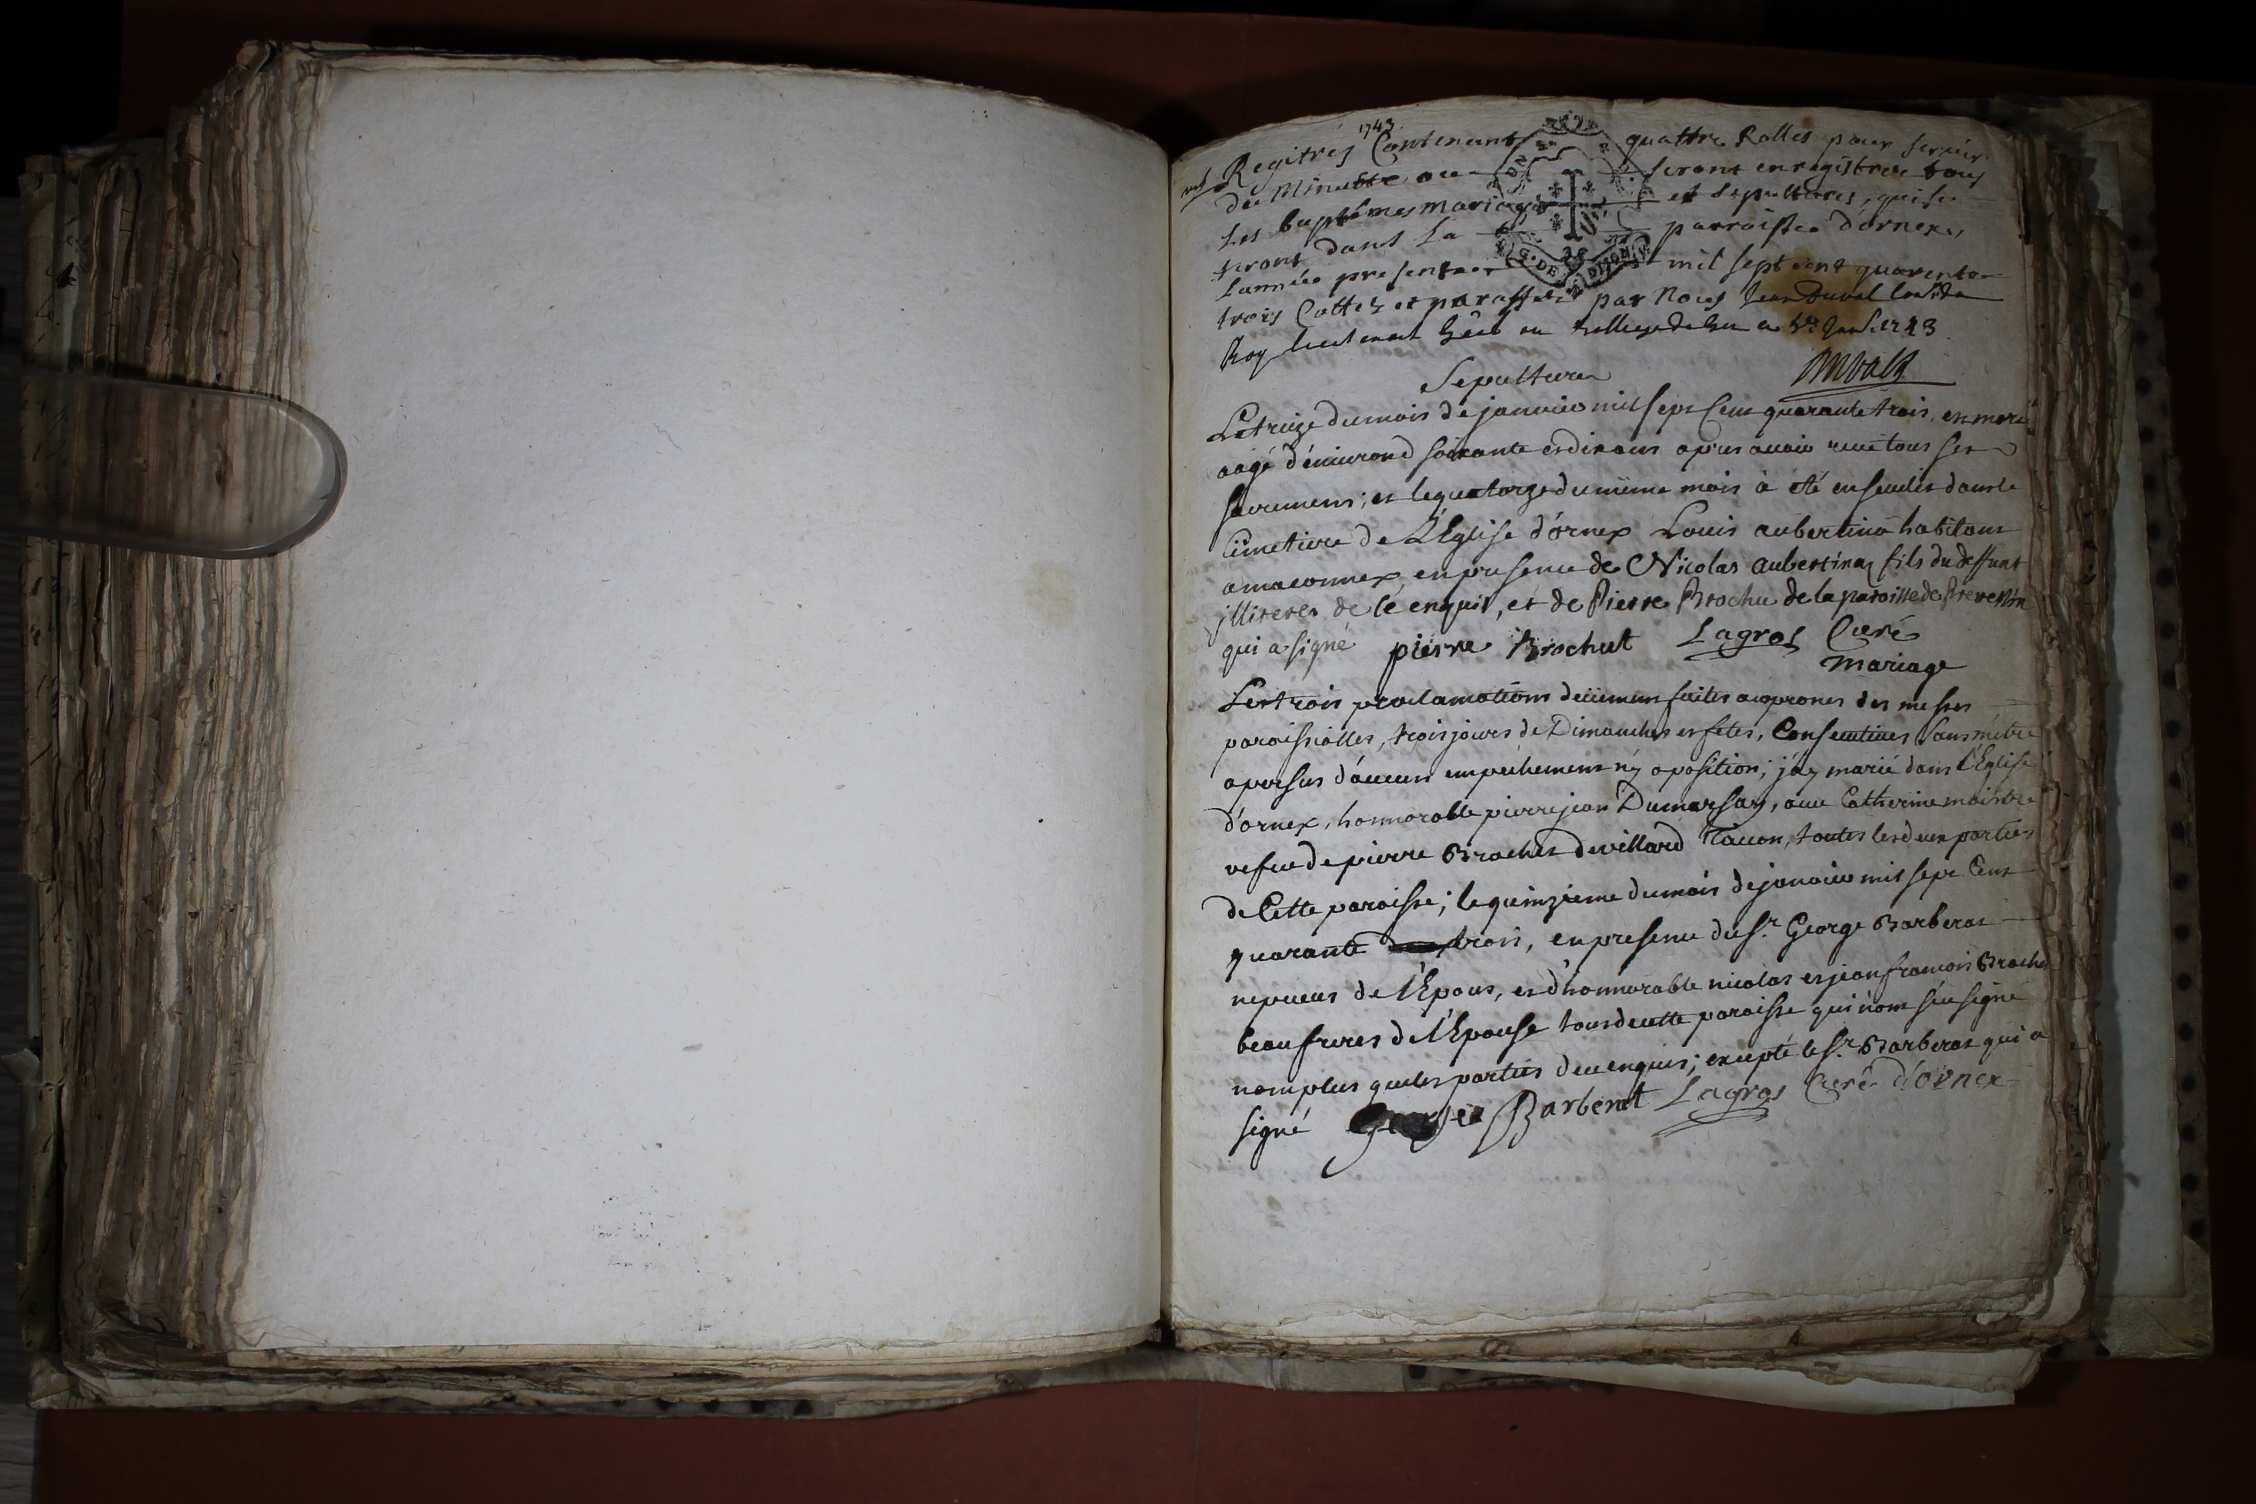 1743
Regitrés Contenant quattre Rolles pour servir
de Minutte ou seront enregistree tous
Les baptêmes mariages et sepultures, qui se
feront dans La parroisse d'ornex,
L'année presente mil sept cent quarente
trois Cottez et paraffez par Nous Jean Duval
Roy lieutenant 1743
Duval
G. DE DIJON
Sepulture
Le treize du mois de janvier mil sept Cent quarante trois, en mort
aagé d'enuirond soixante et dix ans apres auoir receu tous ses
sacremens; et le quatorze du même mois à été enseueli dans le
Cimetiere de L'Eglise d'ornex Louis aubertin habitant
a maconnex, en presence de Nicolas aubertin fils du deffunt
illiteré de ce enquis, et de Pierre Brochu de la paroisse de Prevessin
qui a signé pierre Brochut Lagros Curé
mariage
Les trois proclamations deüement faites au prones des messes
paroissialles, trois jours de Dimanches et fetes, Consecutives sans m'être
apersus d'aucun empechement ny oposition; j'ay marié dans l'Eglise
d'ornex, honnorable pierre jean Dumarsay, auec Catherine maistre
vefue de pierre Brochet de villard Tacon, toutes les deux parties
de Cette paroisse; le quinzieme du mois de janvier mil sept Cent
quarante trois, en presence du Sr. George Barberat
nepueux de l'Epoux, et d'honnorable nicolas et jean francois Broche
beaufreres de l'Epouse tous de cette paroisse qui n'ont sceu signé
nomplus que les parties de ce enquis; excepté le Sr. Barberat qui a
signé George Barberat Lagros Curé d'ornex